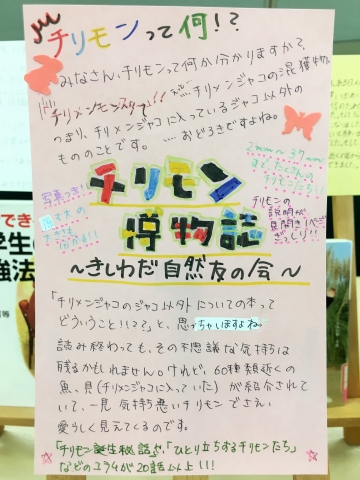 チリモンって何!?
みなさん、チリモンって何か分かりますか?
チリメンモンスター!!
チリメンジャコの混獲物
つまり、チリメンジャコに入っているジャコ以外の
もののことです。……おどろきですよね。
写真つき!!
2mm〜37mm
ほどたくさんの
チリモンたち!!
チリモンの
説明が
見開き1ページ
ぎっしり!!
チリモン
博物誌
〜きしわだ自然友の会〜
「チリメンジャコのジャコ以外についての本って
どういうこと!!??」と、思っちゃいますよね。
読み終わっても、その不思議な気持ちは
残るかもしれません。けれど、60種類近くの
魚、貝(チリメンジャコに入っていた)が紹介されて
いて、一見気持ち悪いチリモンでさえ
愛らしく見えてくるのです。
「チリモン誕生秘話」や、「ひとり立ちするチリモンたち」
などのコラムが20話以上!!!
学生の
強法